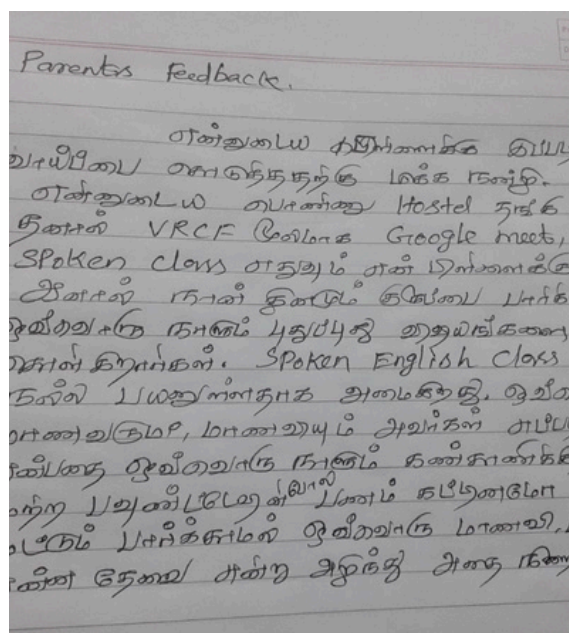 Parents Feedback.
என்னுடைய பிள்ளைக்கு இப்படி
வாய்ப்பை கொடுத்ததற்கு மிக்க நன்றி.
என்னுடைய பொண்ணு Hostel தங்கி
தனால் VRCF மூலமாக Google meet,
Spoken class எதுவும் என் பிள்ளைக்கு
ஆனால் நான் தினமும் குரூப்பை பார்க்
ஒவ்வொரு நாளும் புதுப்புது விஷயங்களை
கொள்கிறார்கள். Spoken English Class
நல்ல பயனுள்ளதாக அமைகிறது. ஒவ்வொ
மாணவரும், மாணவியும் அவர்கள் எப்ப
என்பதை ஒவ்வொரு நாளும் கண்காணிக்கி
மற்ற பவுண்டேஷன் வால் பணம் கட்டினமோ
பார்க்காமல் ஒவ்வொரு மாணவி,
என்ன தேவை என்று அறிந்து அதை